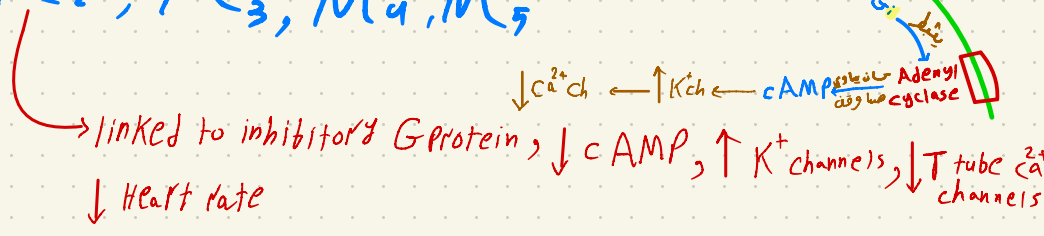 M3, M4, M5
Gi
يثبط
↓ Ca²⁺ch ← ↑ K⁺ch ← cAMP ← Adenyl cyclase
→ linked to inhibitory G protein, ↓ cAMP, ↑ K⁺ channels, ↓ T tube Ca²⁺ channels
↓ Heart rate